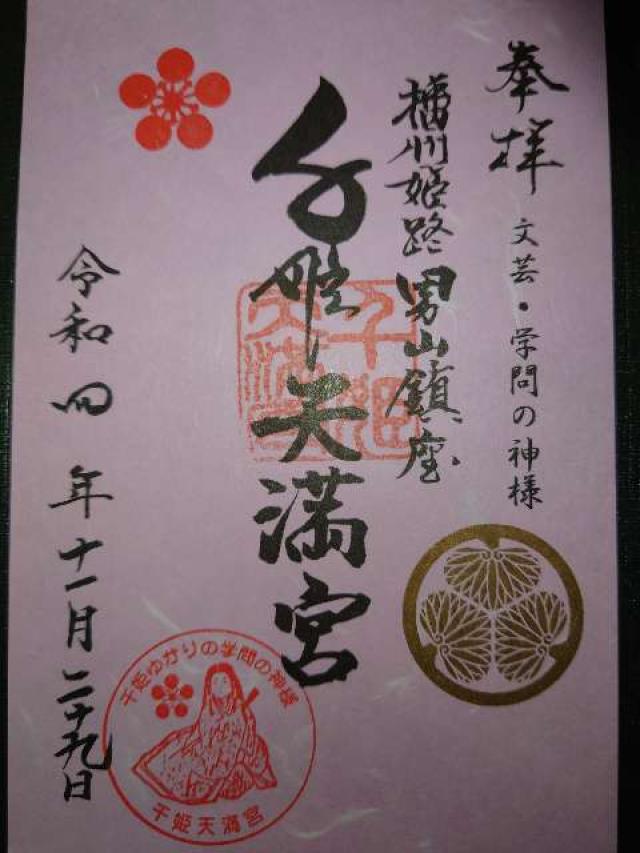 奉拝
文芸・学問の神様
播州姫路男山鎮座
千姫天満宮
千姫天満宮
令和四年十一月二十九日
千姫ゆかりの学問の神様
千姫天満宮